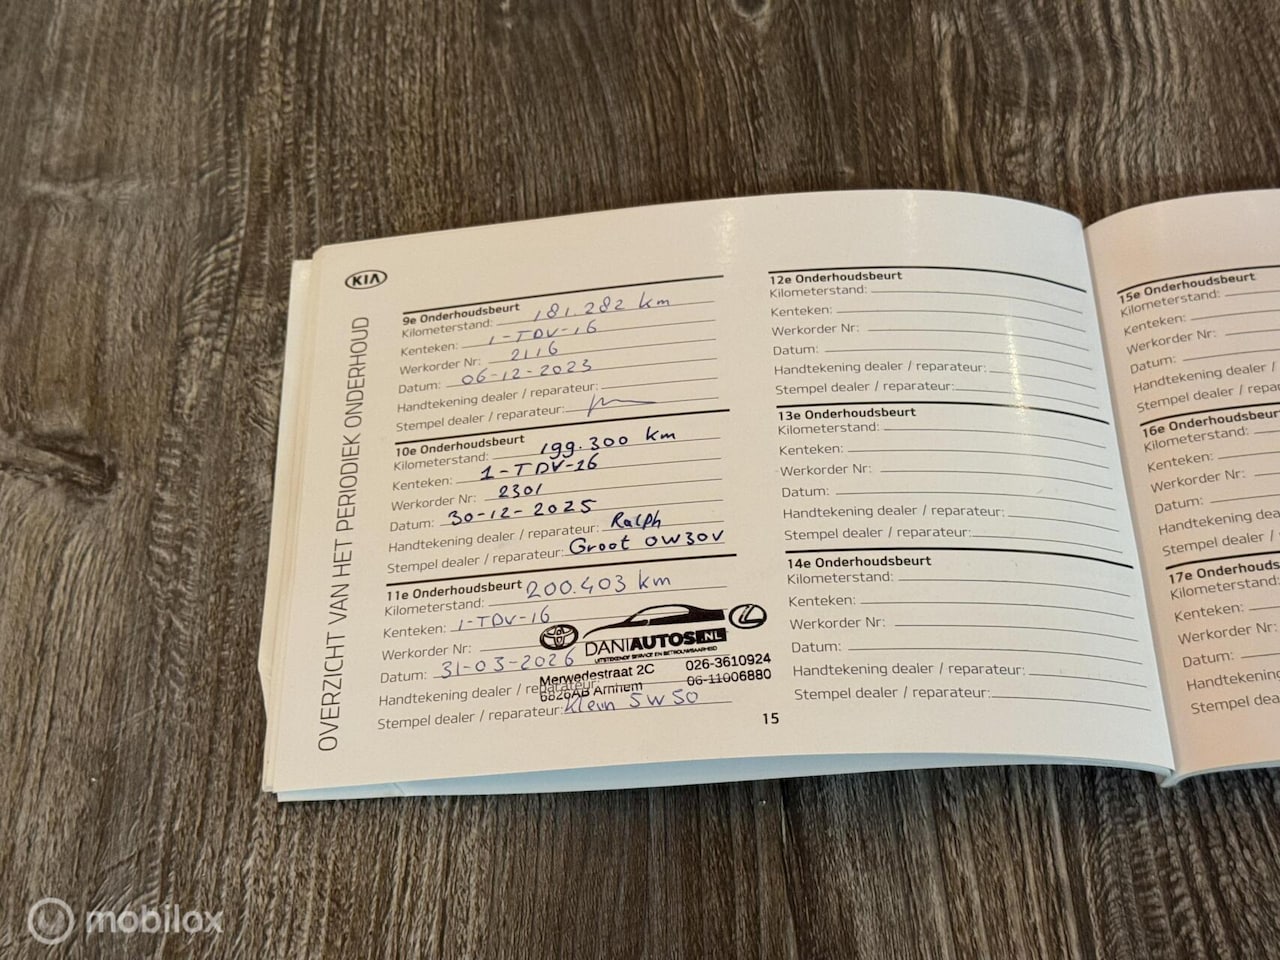 KIA
OVERZICHT VAN HET PERIODIEK ONDERHOUD
9e Onderhoudsbeurt
Kilometerstand: 181.282 km
Kenteken: 1-TDV-16
Werkorder Nr: 2116
Datum: 06-12-2023
Handtekening dealer / reparateur:
Stempel dealer / reparateur:
10e Onderhoudsbeurt
Kilometerstand: 199.300 km
Kenteken: 1-TDV-16
Werkorder Nr: 2301
Datum: 30-12-2025
Handtekening dealer / reparateur: Ralph
Stempel dealer / reparateur: Groot 0W30V
11e Onderhoudsbeurt
Kilometerstand: 200.403 km
Kenteken: 1-TDV-16
Werkorder Nr:
Datum: 31-03-2026
Handtekening dealer / reparateur:
Stempel dealer / reparateur: Klein 5W50
DANIAUTOS.NL
UITSTEKENDE SERVICE EN BETROUWBAARHEID
Merwedestraat 2C 026-3610924
6826AB Arnhem 06-11006880
12e Onderhoudsbeurt
Kilometerstand:
Kenteken:
Werkorder Nr:
Datum:
Handtekening dealer / reparateur:
Stempel dealer / reparateur:
13e Onderhoudsbeurt
Kilometerstand:
Kenteken:
Werkorder Nr:
Datum:
Handtekening dealer / reparateur:
Stempel dealer / reparateur:
14e Onderhoudsbeurt
Kilometerstand:
Kenteken:
Werkorder Nr:
Datum:
Handtekening dealer / reparateur:
Stempel dealer / reparateur:
15
15e Onderhoudsbeurt
Kilometerstand:
Kenteken:
Werkorder Nr:
Datum:
Handtekening dealer /
Stempel dealer /
16e Onderhoudsbeur
Kilometerstand:
Kenteken:
Werkorder Nr:
Datum:
Handtekening dea
Stempel dealer /
17e Onderhouds
Kilometerstand:
Kenteken:
Werkorder Nr:
Datum:
Handtekening
Stempel dea
mobilox